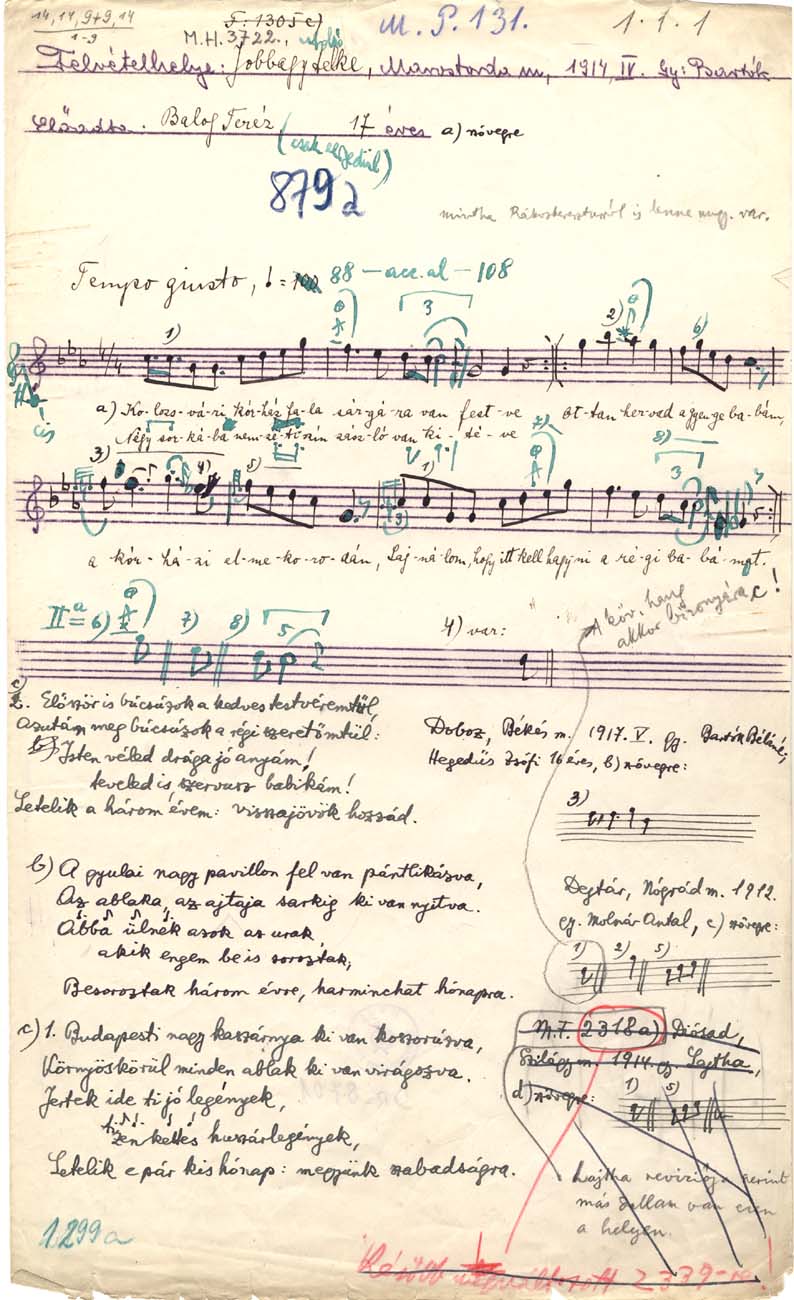 14, 14, 9+9, 14
1-9
F. 1305 c)
M.H. 3722.,
M. P. 131.
1. 1. 1
Felvétel helye: Jobbágytelke, Marostorda m, 1914, IV. Gy: Bartók
Előadta. Balog Teréz 17 éves a) szövegre
879a
mintha Rákoskeresztúrról is lenne var.
Tempo giusto, = 88 - acc. al - 108
3
1) 2) 6)
a) Ko-lozs-vá-ri kór-ház fa-la sár-gá-ra van fest-ve ot-tan her-vad a gyen-ge ba-bám,
Nagy sor-ká-ba nem-ze-ti szín zász-ló van ki-té-ve
cis
3) 4) 5) 1) 7) 8)
3
a kór-há-zi el-me-ko-ro-dán, Saj-ná-lom, hogy itt kell hagy-ni a ré-gi ba-bá-mat.
II a = 6) 7) 8) 5
4) var:
A kör. hang akkor bizonyára c!
2. Először is búcsúzok a kedves testvéremtűl,
Azután meg búcsúzok a régi szeretőmtül:
Isten véled drága jó anyám!
teveled is, szervusz babikám!
Letelik a három évem: visszajövök hozzád.
Doboz, Békés m. 1917. V. gy. Bartók Béláné,
Hegedűs Zsófi 16 éves, b) szövegre:
3)
b) A gyulai nagy pavillon fel van pántlikázva,
Az ablaka, az ajtaja sarkig ki van nyitva.
Abba ülnek azok az urak
akik engem be is soroztak,
Besoroztak három évre, harminchat hónapra.
Dejtár, Nógrád m. 1912.
gy. Molnár Antal, c) szövegre:
1) 2) 5)
c) 1. Budapesti nagy kaszárnya ki van koszorúzva,
Környöskörül minden ablak ki van virágozva.
Jertek ide ti jó legények,
tizenkettes huszárlegények,
Letelik e pár kis hónap: megyünk szabadságra.
M.F. 2318a) Diósad,
Szilágy m. 1914. gy. Lajtha,
d) szövegre:
1) 5)
Lajtha reviziója szerint
más dallam van ezen
a helyen.
1299a
Később 2339-re!